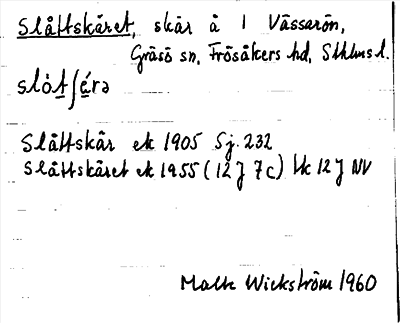 Slåttskäret, skär å l Vässarön,
Gräsö sn, Frösåkers hd, Sthlms l.
slò̀tʃǽrə
Slåttskär ek 1905 Sj. 232
Slåttskäret ek 1955 (12 J 7c) bk 12 J NV
Malte Wickström 1960